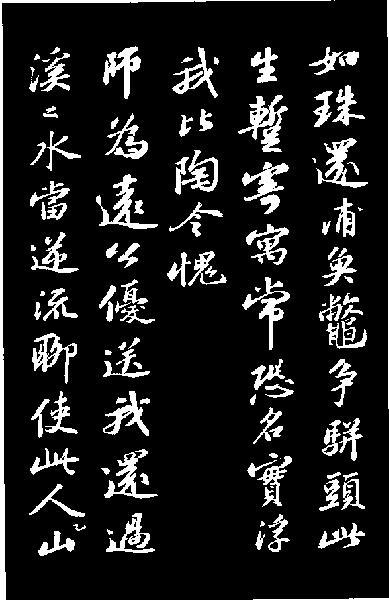 如珠還浦魚鼈争駢頭此
生蹔寄寓常恐名實浮
我比陶令愧
師為遠公優送我還過
溪溪水當逆流聊使此人山